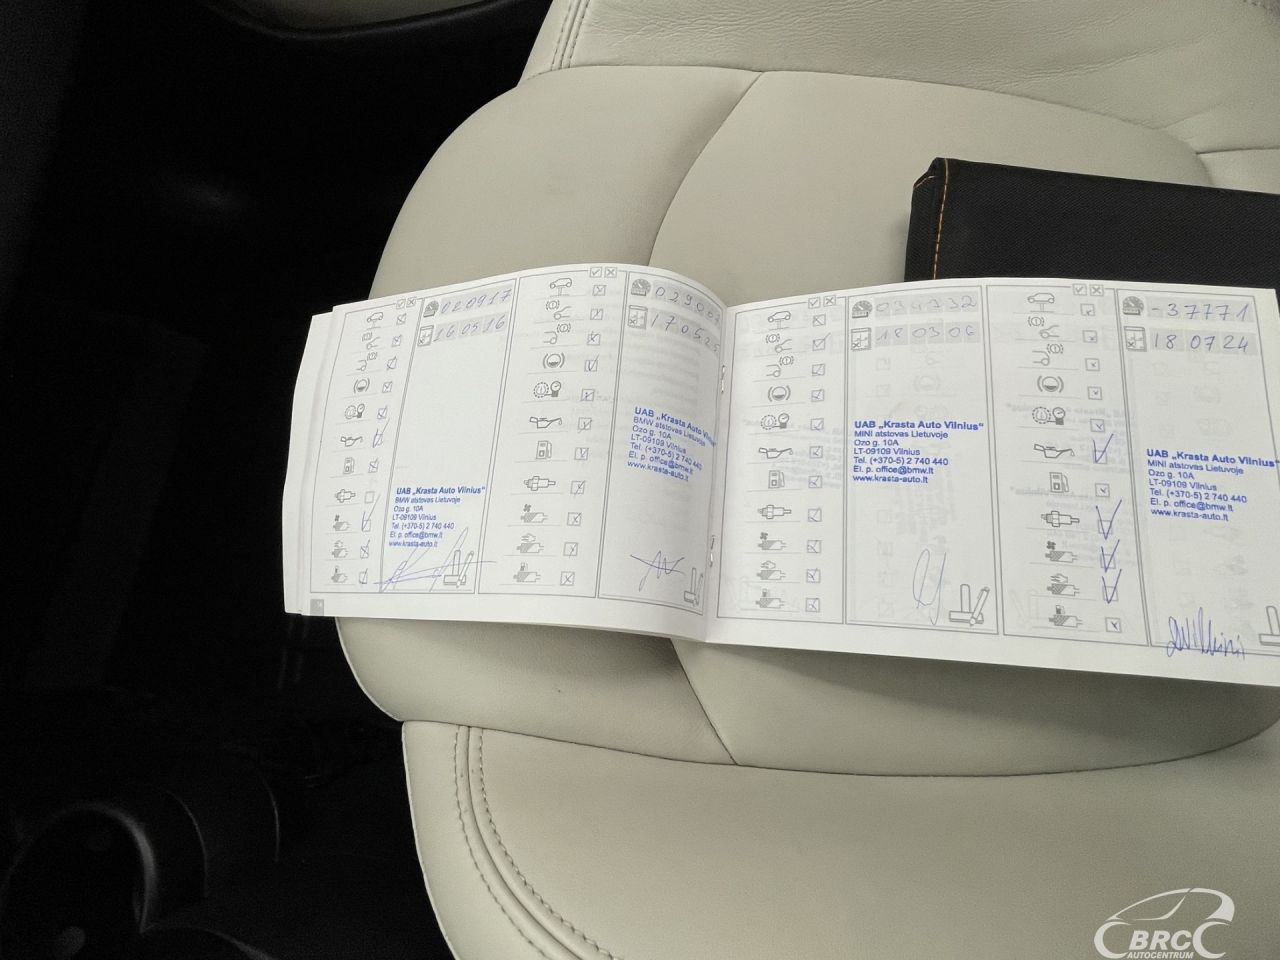 020917
160516
UAB „Krasta Auto Vilnius“
BMW atstovas Lietuvoje
Ozo g. 10A
LT-09109 Vilnius
Tel. (+370-5) 2 740 440
El. p. office@bmw.lt
www.krasta-auto.lt
170525
UAB „Krasta Auto Vilnius“
BMW atstovas Lietuvoje
Ozo g. 10A
LT-09109 Vilnius
Tel. (+370-5) 2 740 440
El. p. office@bmw.lt
www.krasta-auto.lt
180306
UAB „Krasta Auto Vilnius“
MINI atstovas Lietuvoje
Ozo g. 10A
LT-09109 Vilnius
Tel. (+370-5) 2 740 440
El. p. office@bmw.lt
www.krasta-auto.lt
-37771
180724
UAB „Krasta Auto Vilnius“
MINI atstovas Lietuvoje
Ozo g. 10A
LT-09109 Vilnius
Tel. (+370-5) 2 740 440
El. p. office@bmw.lt
www.krasta-auto.lt
BRC
AUTOCENTRUM